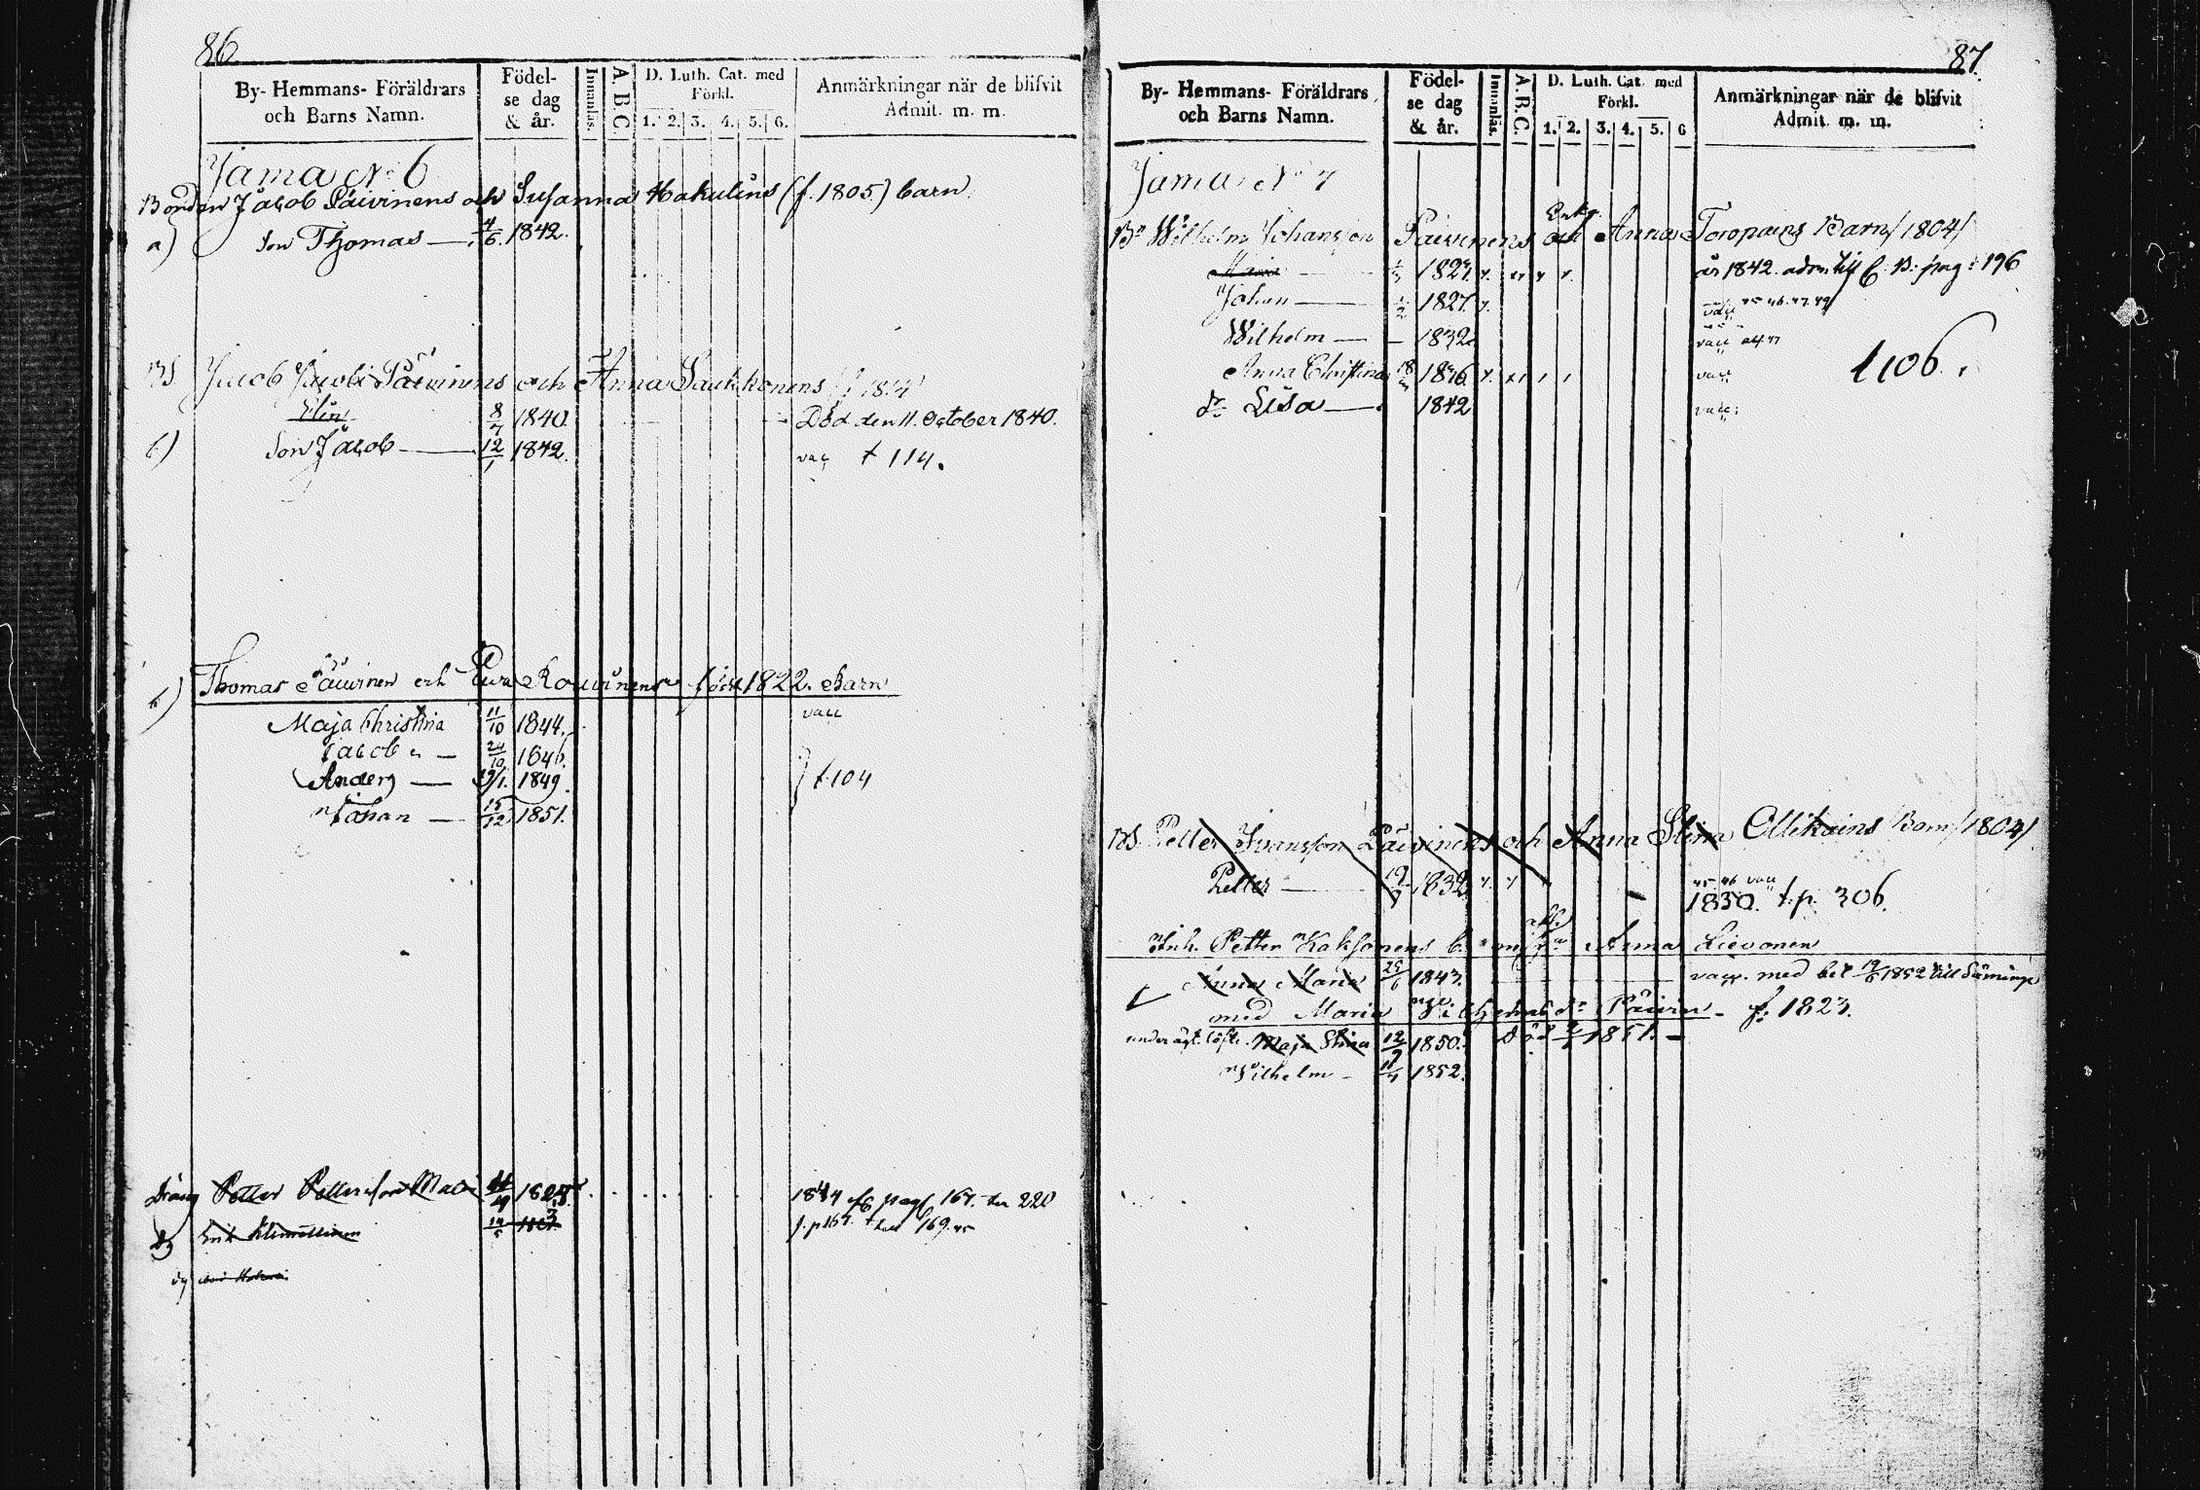 86
By- Hemmans- Föräldrars och Barns Namn.
Födel- se dag & år.
Innanläs.
A B C
D. Luth. Cat. med Förkl.
1. 2. 3. 4. 5. 6.
Anmärkningar när de blifvit Admit. m. m.
Jama No 6
Bonden Jacob Päivinens och Susanna Hakulins (f. 1805) barn
a) Son Thomas — 4/6. 1842.
Jacob Jacobs Päivinens och Anna Saukkonens
Elin 8/7 1840. Död den 11. October 1840.
Son Jacob — 12/1 1842. vac t 114.
Thomas Päivinen och Eva Rouvinens född 1822. Barn
Maja Christina 11/10 1844. vacc
Jacob — 24/10 1846.
Anders — 1849. t. 104
Johan — 15/12 1851.
Dräng Petter Pettersson
Erik
87.
By- Hemmans- Föräldrars och Barns Namn.
Födel- se dag & år.
Innanläs.
A. B. C.
D. Luth. Cat. med Förkl.
1. 2. 3. 4. 5. 6
Anmärkningar när de blifvit Admit. m. m.
Jama No 7
Wilhelm Johansson Päivinens och Enkg. Anna Toropains Barn /1804/
Maria år 1842 adm. till C. B. pag: 196
Johan — 1827.
Wilhelm — 1832 vacc
Anna Christina 1836 vacc
dr Lisa — 1842 vacc
t 106.
Petter Ivansson Päivinens och Anna Stina Ollikains Barn /1804/
Petter — 1832 vacc
1850. t. p. 306.
Inh. Petter Kaksonens b. m. Anna Lievonen
Anna Maria 25/6 1843. vacc. med bet. 1852 till Säminge
med Maria Wilhelmsdr Päivin. f: 1823.
under äkt. löfte. Maja Stina 12/9 1850. Död 1851. —
Wilhelm — 1852.